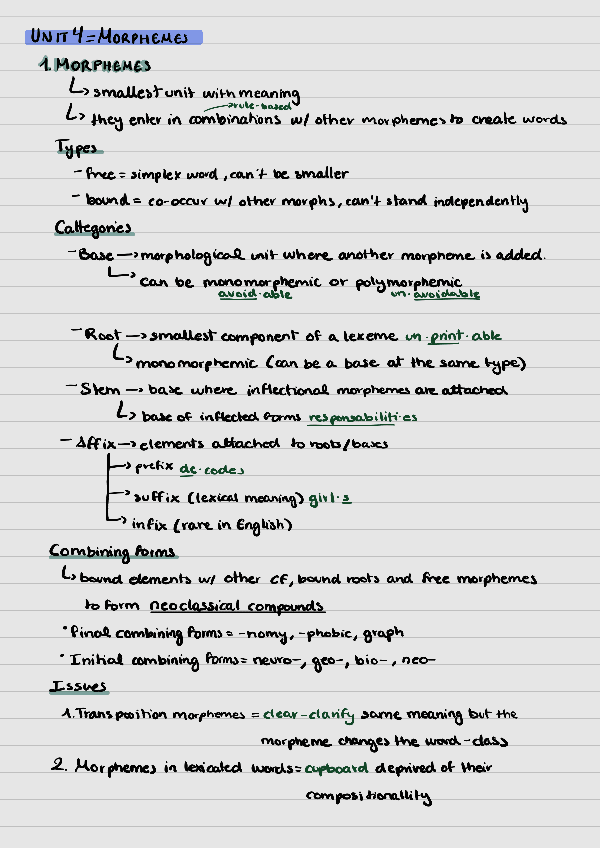 UNIT 4 = MORPHEMES
1. MORPHEMES
↳ smallest unit with meaning
→ rule-based
↳ they enter in combinations w/ other morphemes to create words
Types
- free = simplex word, can't be smaller
- bound = co-occur w/ other morphs, can't stand independently
Cattegories
- Base → morphological unit where another morpheme is added.
↳ can be monomorphemic or polymorphemic
avoid·able un·avoidable
- Root → smallest component of a lexeme un·print·able
↳ monomorphemic (can be a base at the same type)
- Stem → base where inflectional morphemes are attached
↳ base of inflected forms responsabiliti·es
- Affix → elements attached to roots/bases
→ prefix de·codes
→ suffix (lexical meaning) girl·s
↳ infix (rare in English)
Combining forms
↳ bound elements w/ other CF, bound roots and free morphemes
to form neoclassical compounds
· Final combining forms = -nomy, -phobic, graph
· Initial combining forms = neuro-, geo-, bio-, neo-
Issues
1. Transposition morphemes = clear-clarify same meaning but the
morpheme changes the word-class
2. Morphemes in lexicated words = cupboard deprived of their
compositionallity